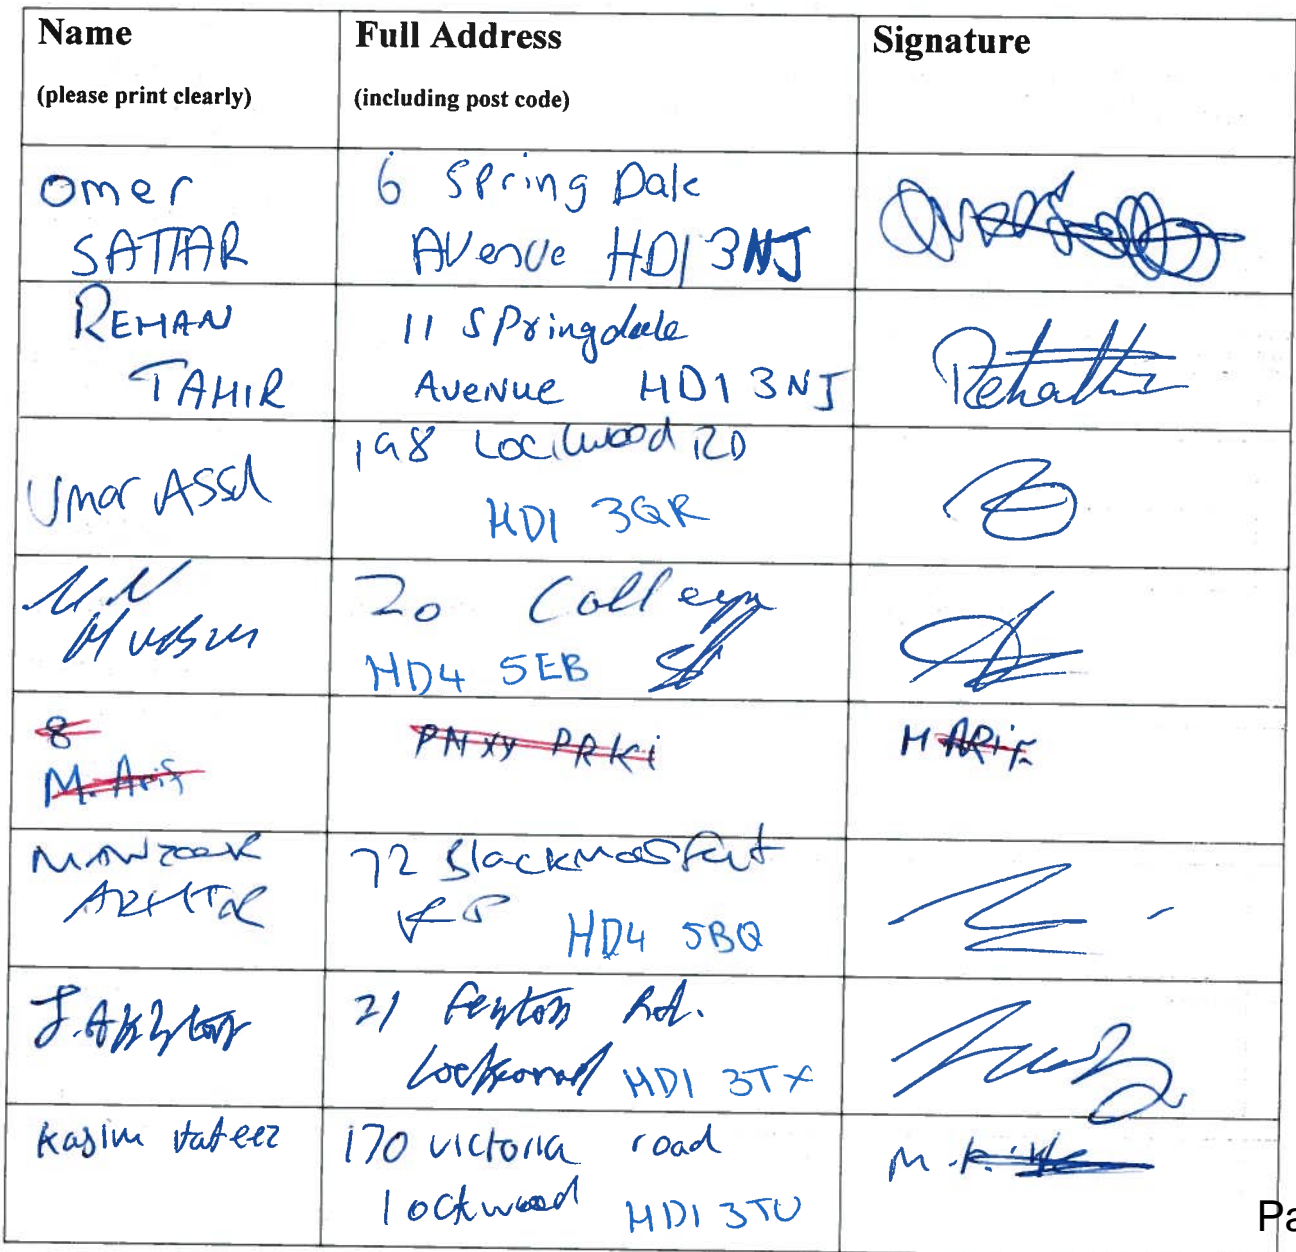 Name
(please print clearly)
Full Address
(including post code)
Signature
Omer
SATTAR
6 Spring Dale
Avenue HD1 3NJ
REHAN
TAHIR
11 Springdale
Avenue HD1 3NJ
Umar ASSd
198 Lockwood RD
HD1 3QR
20
HD4 5EB
8
M. Arif
PNXY PRKi
M ARif
72 Blackmoorfoot
HD4 5BQ
J. Akhtar
21 Fenton Rd.
Lockwood HD1 3TX
Kasim
170 victoria road
lockwood HD1 3TU
M.
Pa